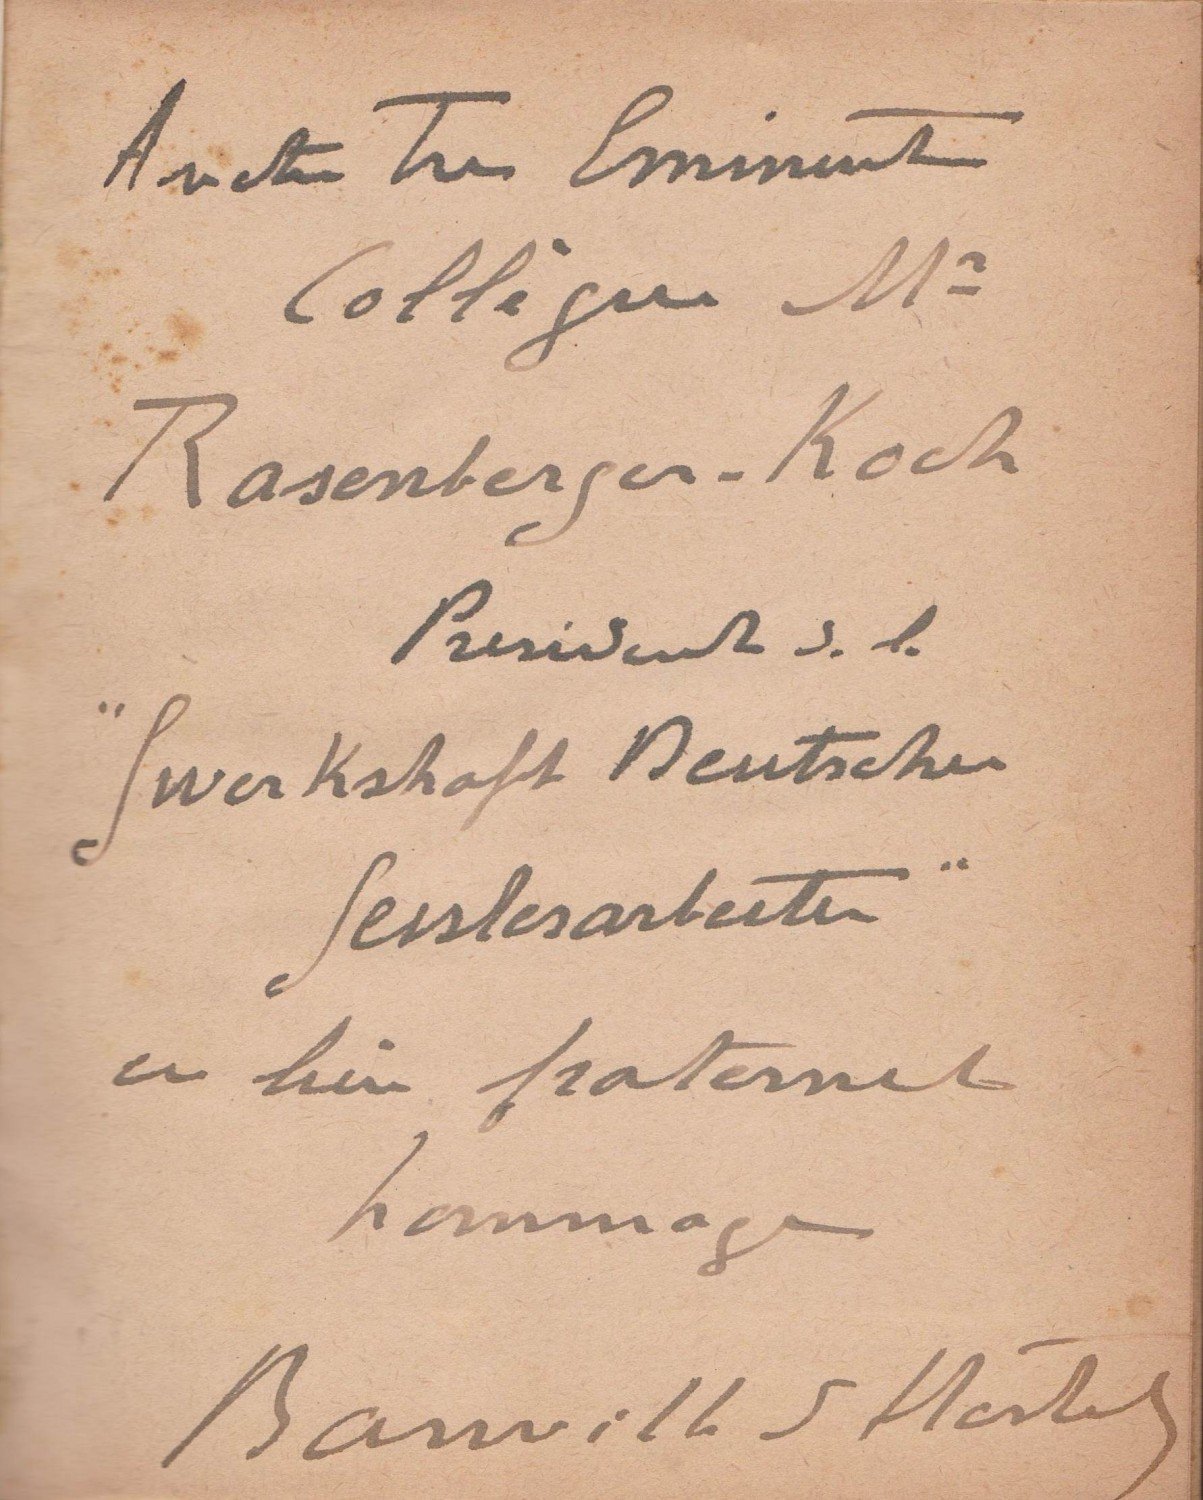 A notre Très Eminent
Collègue Mr
Rasenberger-Koch
President d. l.
"Gwerkshaft Deutscher
Geistesarbeiter"
en bien fraternel
hommage
Banville d'Hostel